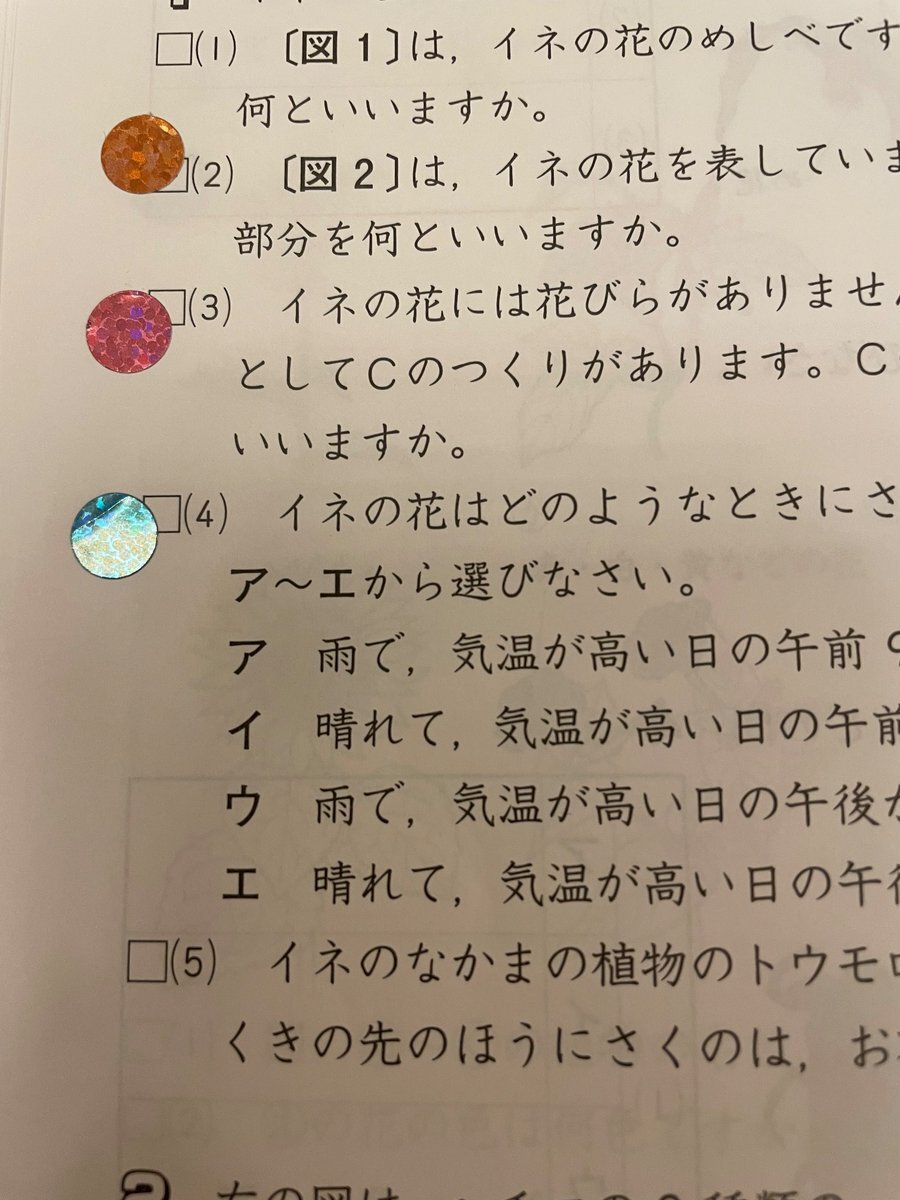 □(1) 〔図1〕は，イネの花のめしべです
何といいますか。
□(2) 〔図2〕は，イネの花を表していま
部分を何といいますか。
□(3) イネの花には花びらがありませ
としてCのつくりがあります。C
いいますか。
□(4) イネの花はどのようなときにさ
ア～エから選びなさい。
ア 雨で，気温が高い日の午前9
イ 晴れて，気温が高い日の午前
ウ 雨で，気温が高い日の午後
エ 晴れて，気温が高い日の午後
□(5) イネのなかまの植物のトウモロ
くきの先のほうにさくのは，お